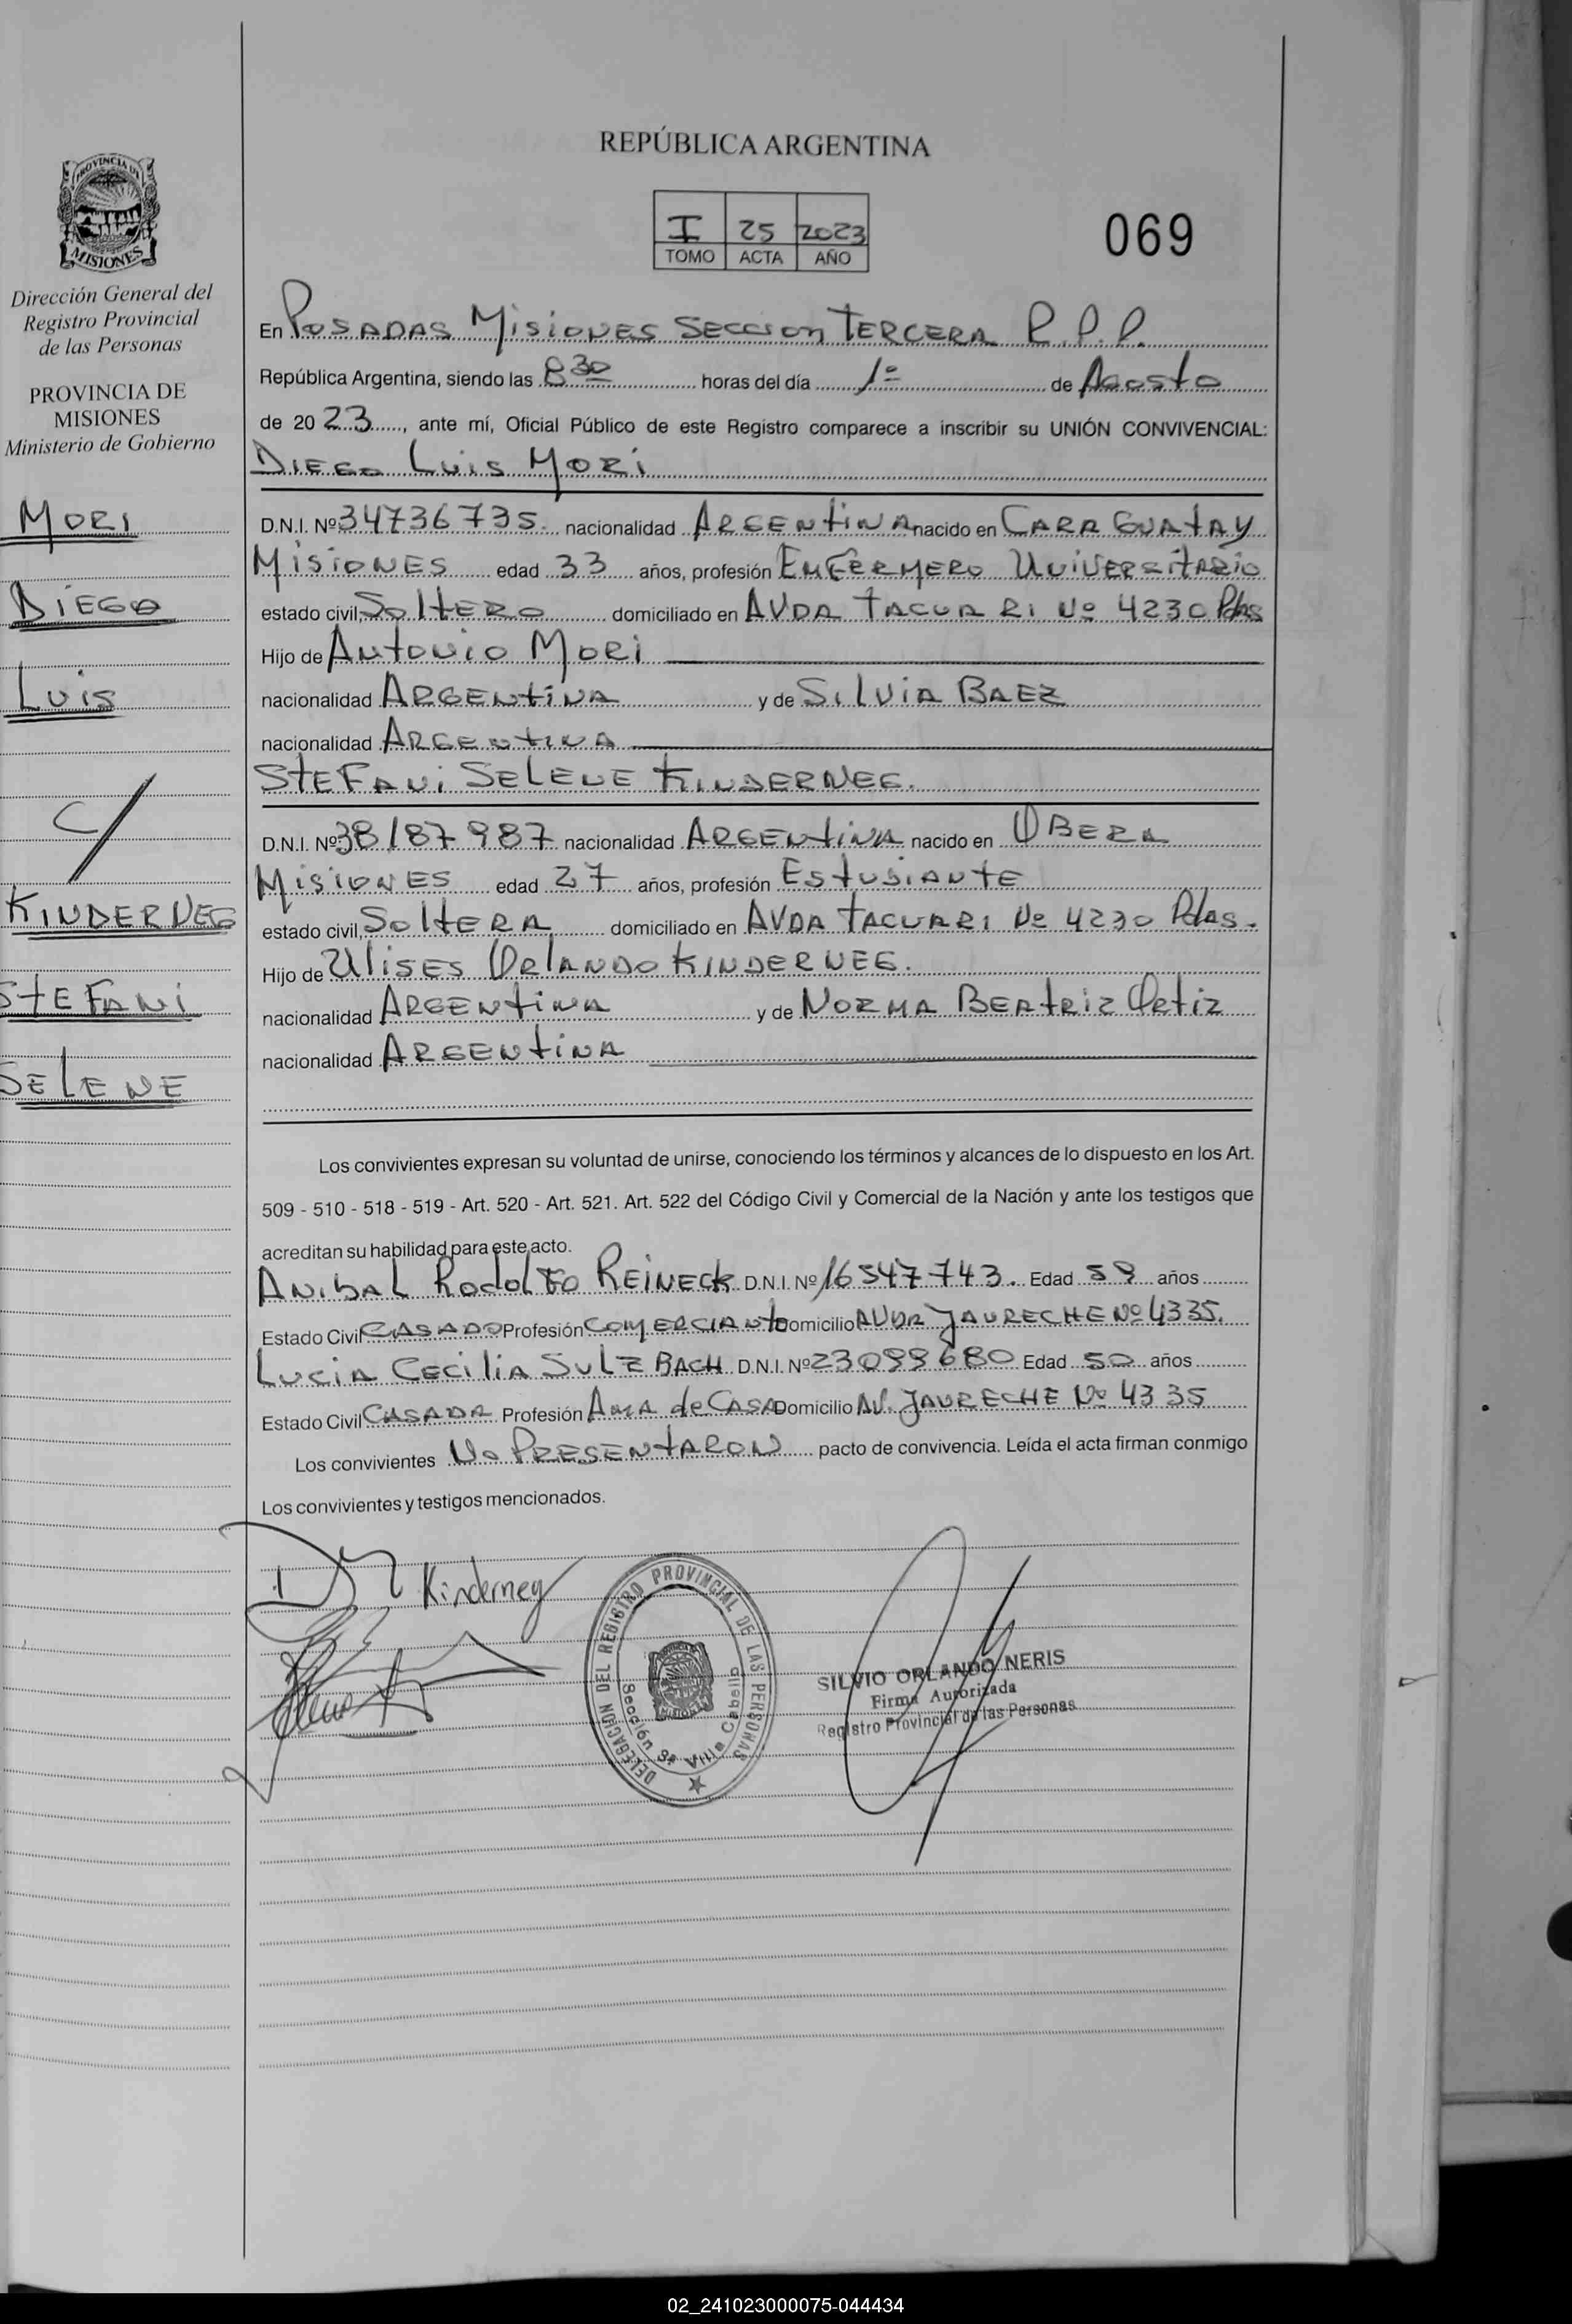 REPÚBLICA ARGENTINA
I 25 2023
TOMO ACTA AÑO
069
PROVINCIA DE
MISIONES
Dirección General del
Registro Provincial
de las Personas
PROVINCIA DE
MISIONES
Ministerio de Gobierno
MORI
DIEGO
LUIS
C/
KINDERNEG
STEFANI
SELENE
En POSADAS MISIONES SECCION TERCERA R.P.P.
República Argentina, siendo las 8 30 horas del día 1º de Agosto
de 2023, ante mí, Oficial Público de este Registro comparece a inscribir su UNIÓN CONVIVENCIAL:
DIEGO LUIS MORI
D.N.I. Nº 34736735. nacionalidad ARGENTINA nacido en CARAGUATAY
MISIONES edad 33 años, profesión ENFERMERO UNIVERSITARIO
estado civil SOLTERO domiciliado en AVDA TACUARI Nº 4230 Pdas
Hijo de ANTONIO MORI
nacionalidad ARGENTINA y de SILVIA BAEZ
nacionalidad ARGENTINA
STEFANI SELENE KINDERNEG.
D.N.I. Nº 38187987 nacionalidad ARGENTINA nacido en OBERA
MISIONES edad 27 años, profesión ESTUDIANTE
estado civil, SOLTERA domiciliado en AVDA TACUARI Nº 4230 Pdas.
Hijo de ULISES ORLANDO KINDERNEG.
nacionalidad ARGENTINA y de NORMA BEATRIZ ORTIZ
nacionalidad ARGENTINA
Los convivientes expresan su voluntad de unirse, conociendo los términos y alcances de lo dispuesto en los Art.
509 - 510 - 518 - 519 - Art. 520 - Art. 521. Art. 522 del Código Civil y Comercial de la Nación y ante los testigos que
acreditan su habilidad para este acto.
ANIBAL RODOLFO REINECK D.N.I. Nº 16547743. Edad 59 años
Estado Civil CASADO Profesión COMERCIANTE Domicilio AVDA JAURECHE Nº 4335.
LUCIA CECILIA SULZBACH D.N.I. Nº 23099680 Edad 50 años
Estado Civil CASADA Profesión AMA de CASA Domicilio AV. JAURECHE Nº 4335
Los convivientes NO PRESENTARON pacto de convivencia. Leída el acta firman conmigo
Los convivientes y testigos mencionados.
Kinderneg
DELEGACION DEL REGISTRO PROVINCIAL DE LAS PERSONAS
Sección 3ª Villa Cabello
SILVIO ORLANDO NERIS
Firma Autorizada
Registro Provincial de las Personas
02_241023000075-044434